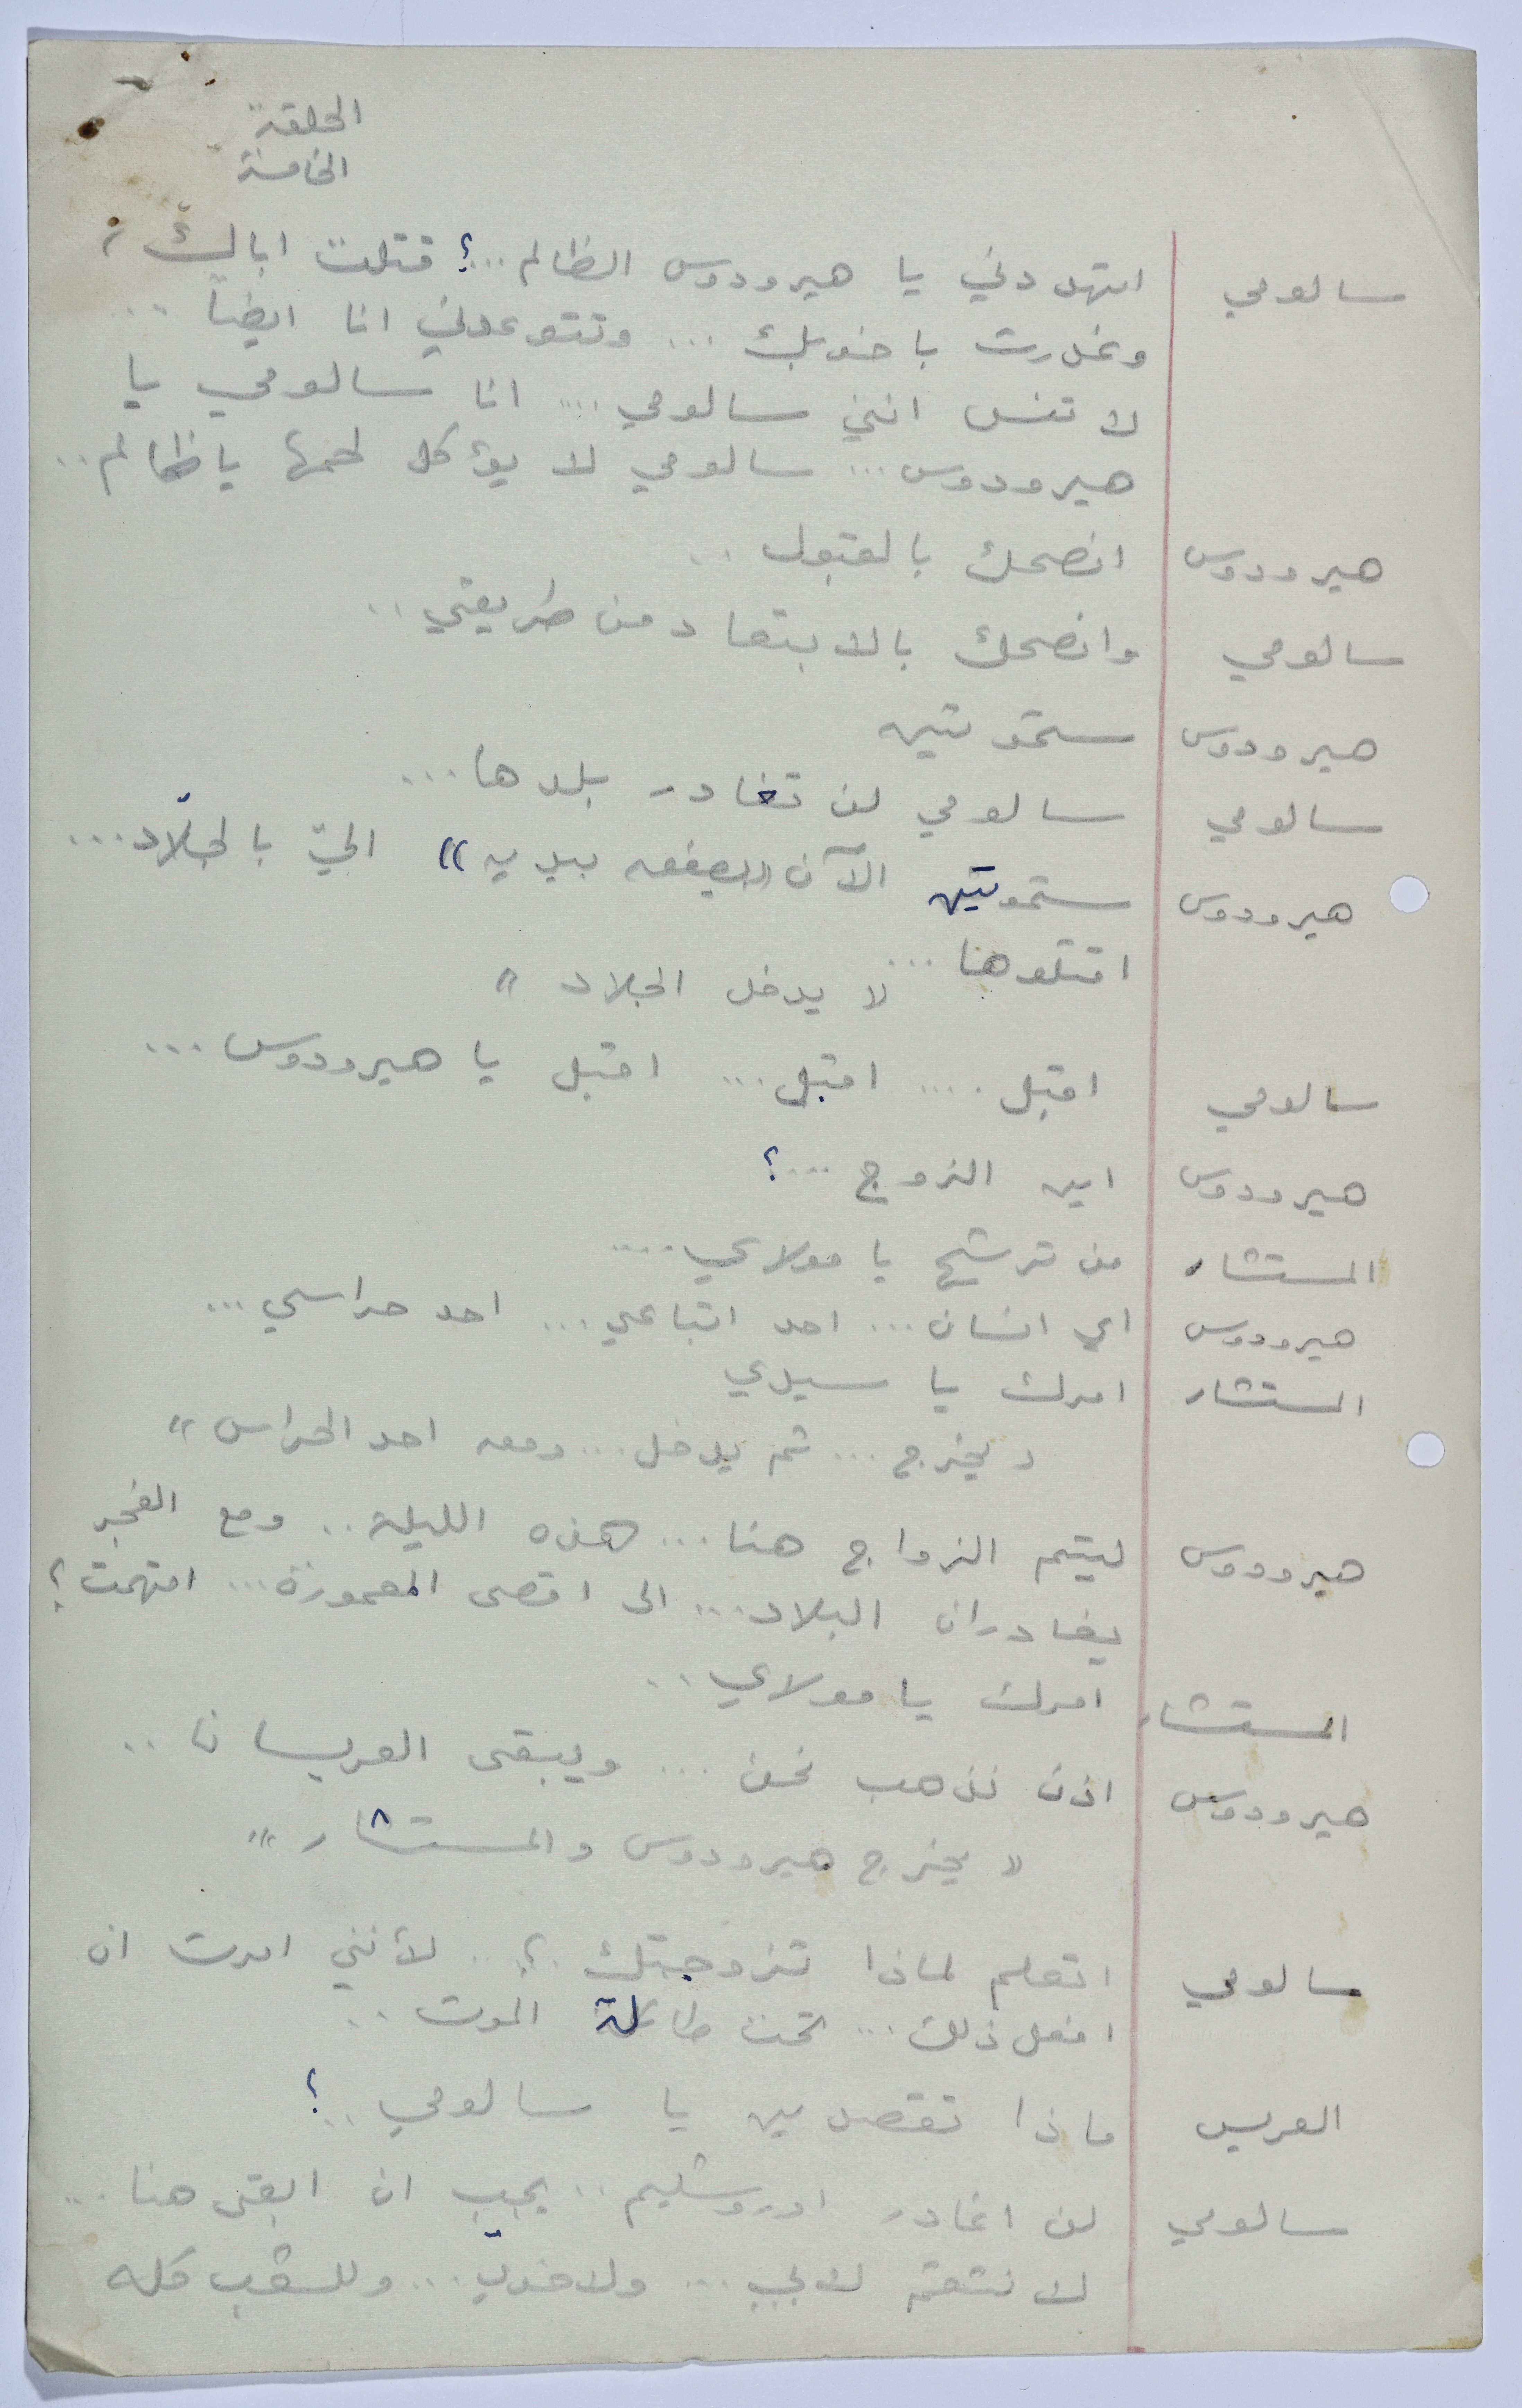 الحلقة
الخامسة
سالومي اتهددني يا هيرودوس الظالم...؟ قتلت اباك،
وغدرت باخويك ... وتتوعدني انا ايضاً ..
لا تنس انني سالومي ... انا سالومي يا
هيرودوس ... سالومي لا يؤكل لحمها يا ظالم ..
هيرودوس انصحك بالقبول ..
سالومي وانصحك بالابتعاد من طريقي ..
هيرودوس ستموتين
سالومي سالومي لن تغادر بلدها ...
هيرودوس ستموتين الآن «يصفعه بيديه» اليّ بالجلّاد ...
اقتلوها ...
لا يدخل الجلاد »
سالومي اقبل .... اقبل ... اقبل يا هيرودوس ...
هيرودوس اين الزوج ....؟
المستشار من ترشح يا مولاي ....
هيرودوس اي انسان ... احد اتباعي ... احد حراسي ...
المستشار امرك يا سيدي
« يخرج ... ثم يدخل ... ومعه احد الحراس »
هيرودوس ليتم الزواج هنا ... هذه الليلة .. ومع الفجر
يغادران البلاد ... الى اقصى المعمورة ... افهمت؟
المستشار امرك يا مولاي ..
هيرودوس اذن نذهب نحن ... ويبقى العريسان ..
« يخرج هيرودوس والمستشار »
سالومي اتعلم لماذا تزوجتك ؟.. لأنني امرت ان
افعل ذلك ... تحت طائلة الموت ..
العريس ماذا تقصدين يا سالومي ..؟
سالومي لن اغادر اوروشليم .. يجب ان ابقى هنا ...
لانتقم لابي ... ولاخويّ ... وللشعب كله